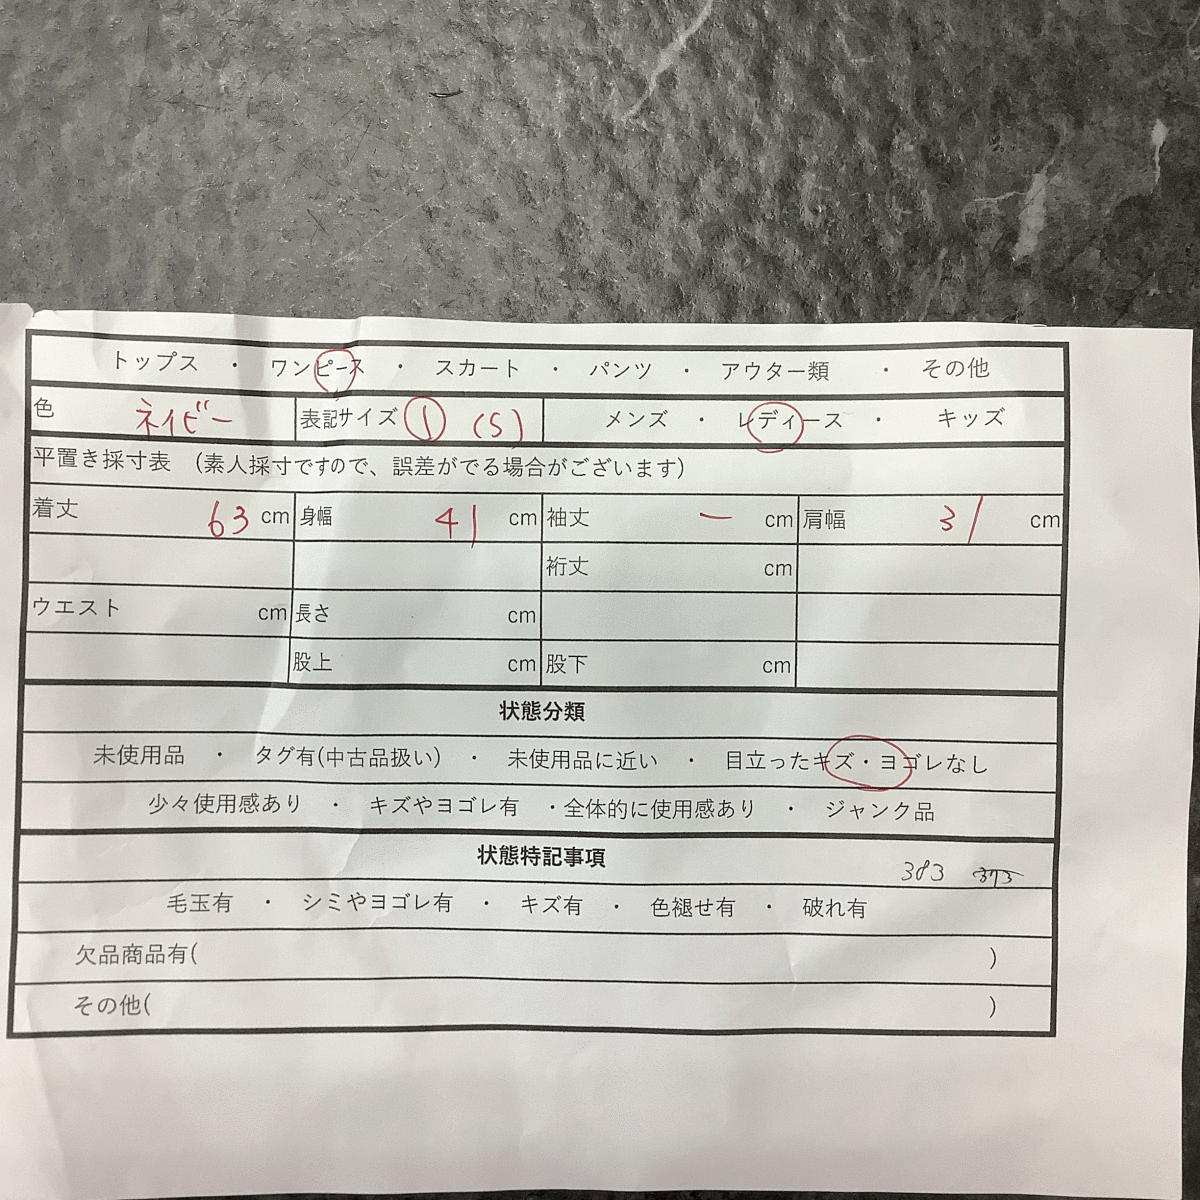 トップス ・ ワンピース ・ スカート ・ パンツ ・ アウター類 ・ その他
色 ネイビー 表記サイズ 1 (S) メンズ ・ レディース ・ キッズ
平置き採寸表 (素人採寸ですので、誤差がでる場合がございます)
着丈 63 cm 身幅 41 cm 袖丈 ー cm 肩幅 31 cm
裄丈 cm
ウエスト cm 長さ cm
股上 cm 股下 cm
状態分類
未使用品 ・ タグ有(中古品扱い) ・ 未使用品に近い ・ 目立ったキズ・ヨゴレなし
少々使用感あり ・ キズやヨゴレ有 ・全体的に使用感あり ・ ジャンク品
状態特記事項 383
毛玉有 ・ シミやヨゴレ有 ・ キズ有 ・ 色褪せ有 ・ 破れ有
欠品商品有( )
その他( )